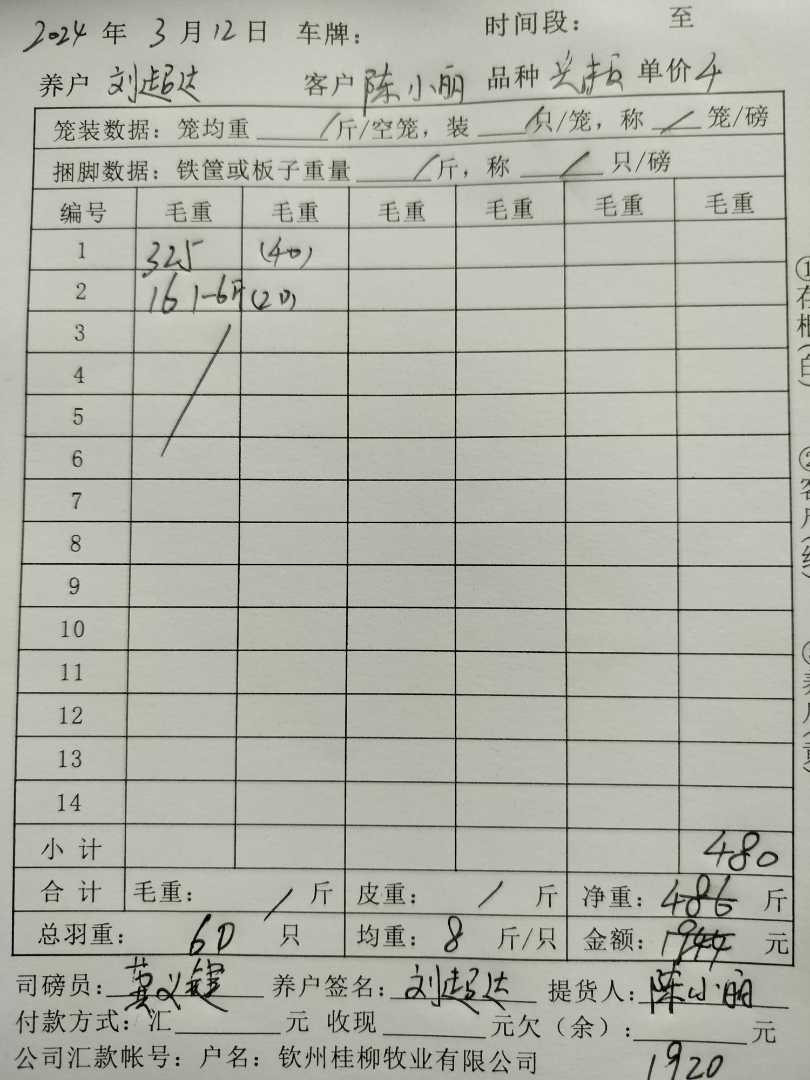 2024 年 3 月 12 日 车牌： 时间段： 至
养户 刘超达 客户 陈小丽 品种 单价 4
笼装数据：笼均重 / 斤/空笼，装 / 只/笼，称 / 笼/磅
捆脚数据：铁筐或板子重量 / 斤，称 / 只/磅
编号 毛重 毛重 毛重 毛重 毛重 毛重
1 325 (40)
2 161-6斤 (20)
3
4
5
6
7
8
9
10
11
12
13
14
小计 480
合计 毛重： / 斤 皮重： / 斤 净重：486 斤
总羽重： 60 只 均重：8 斤/只 金额：1944 元
司磅员： 养户签名：刘超达 提货人：陈小丽
付款方式：汇 元 收现 元欠（余）： 元
公司汇款帐号：户名：钦州桂柳牧业有限公司 1920